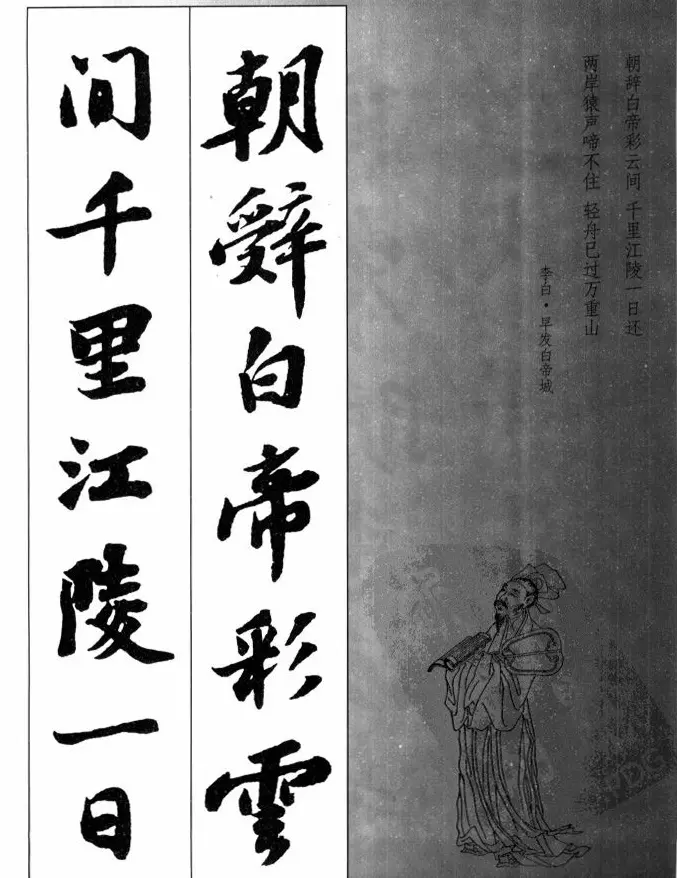 朝辞白帝彩云间 千里江陵一日还
两岸猿声啼不住 轻舟已过万重山
李白·早发白帝城
朝辭白帝彩雲
间千里江陵一日
PDG